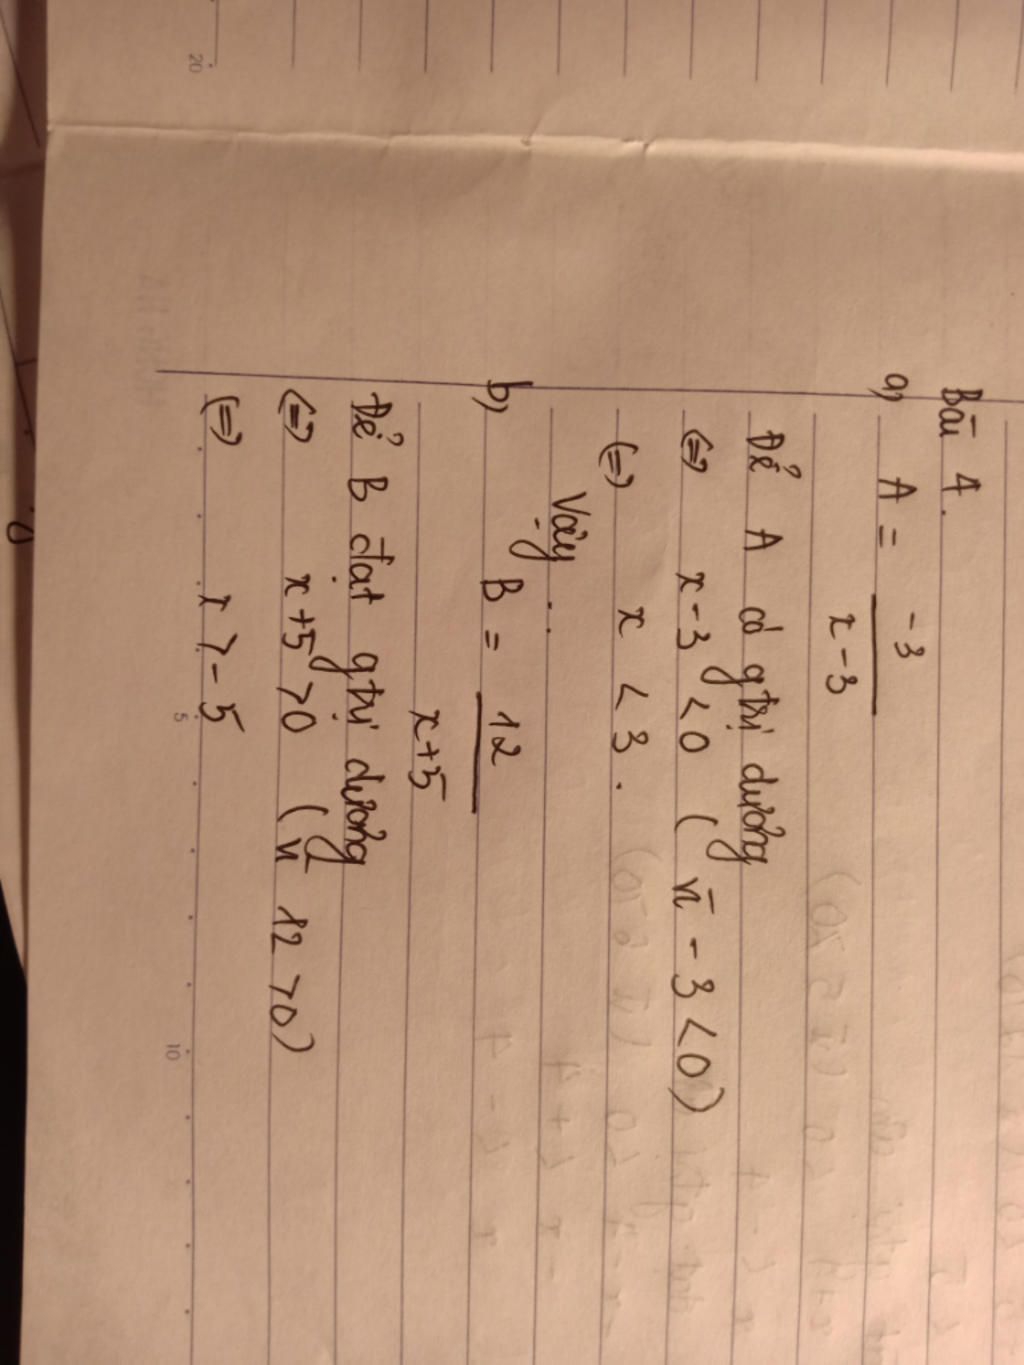 Bài 4.
a) A = -3
x - 3
Để A có gtrị dương
(=) x - 3 < 0 ( vì - 3 < 0 )
(=) x < 3 .
Vậy ..
b) B = 12
x + 5
Để B đạt gtrị dương
(=) x + 5 > 0 ( vì 12 > 0 )
(=) x > - 5
5
10
20